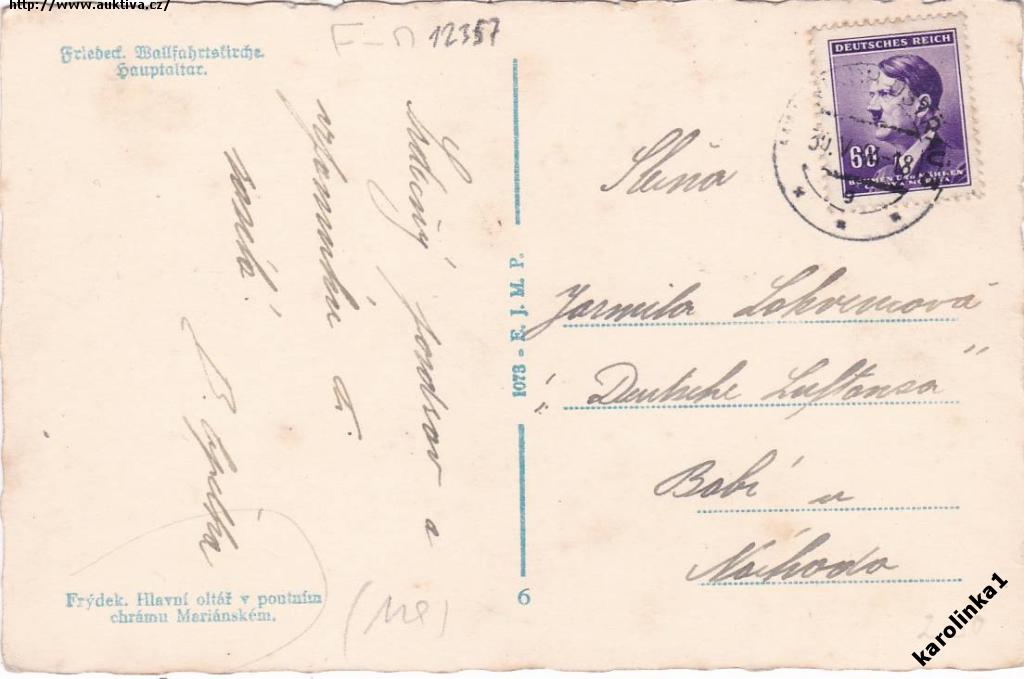 http://www.auktiva.cz/
F-M 12357
Friedeck. Wallfahrtskirche.
Hauptaltar.
Srdečný pozdrav a
vzpomínku
zasílá
B.
Frýdek. Hlavní oltář v poutním
chrámu Mariánském.
1078 - E. J. M. P.
6
DEUTSCHES REICH
60
BÖHMEN UND MÄHREN
Slečna
Jarmila
"Deutsche Lufthansa"
Babí u
Náchoda
karolinka1